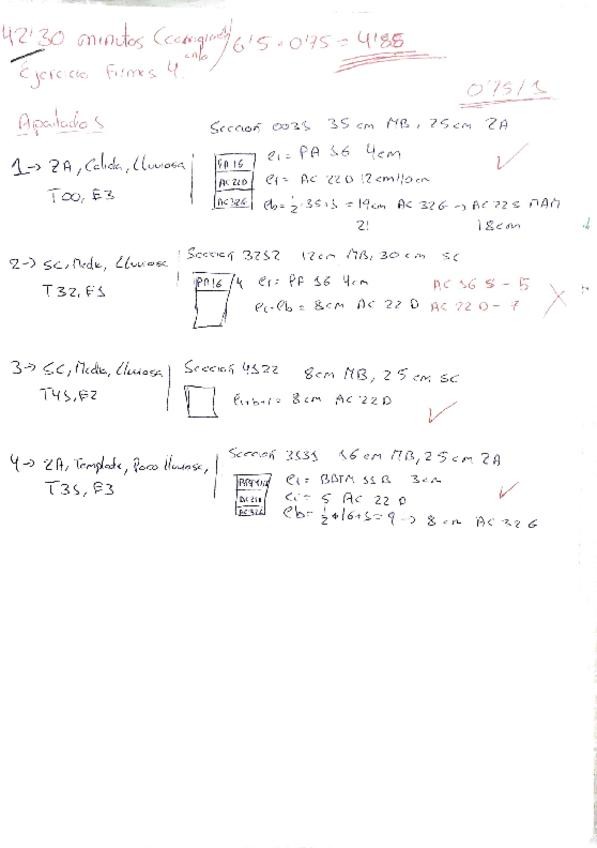 42'30 minutos (corrigiendo) 6'5 · 0'75 = 4'88
Ejercicio Firmes 4.
0'75/1
Apartados
Seccion 0031 35cm MB, 25cm ZA
1→ ZA, Calida, Lluviosa
T00, E3
PA 16
AC 22D
AC 32G
e1 = PA 16 4cm
AC 22 D 12cm/10cm
eb = 1/2 · 35 + 1 = 19cm AC 32G → AC 22S MAM
18cm
2→ SC, Media, Lluviosa
T32, E1
Seccion 3212 12cm MB, 30cm SC
PA 16 4
PA 16 4cm
= 8cm AC 22 D
AC 16 S - 5
AC 22 D - 7
3→ SC, Media, Lluviosa
T41, E2
Seccion 4122 8cm MB, 25cm SC
= 8cm AC 22D
4→ ZA, Templada, Poco lluviosa,
T31, E3
Seccion 3131 16cm MB, 25cm ZA
AC 22D
AC 32G
BBTM 11B 3cm
5 AC 22 D
eb = 1/2 · 16 + 1 = 9 → 8cm AC 32 G